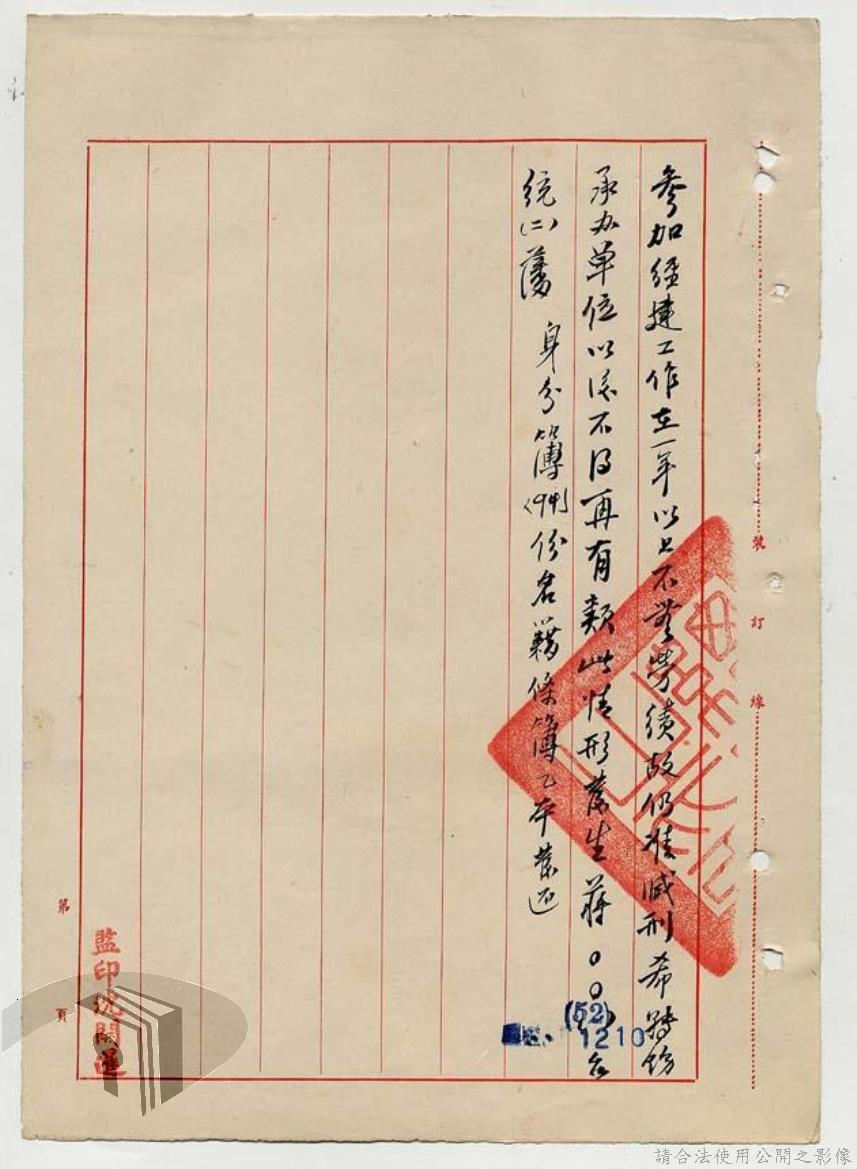 裝 訂 線
参加經建工作在一年以上不無勞績故仍准減刑希轉飭
承办单位以後不得再有類此情形發生蔣○○ 台
統(二) 身分簿(94)份名籍條簿乙本發還
(52)
1210
第 頁
監印沈開運
請合法使用公開之影像